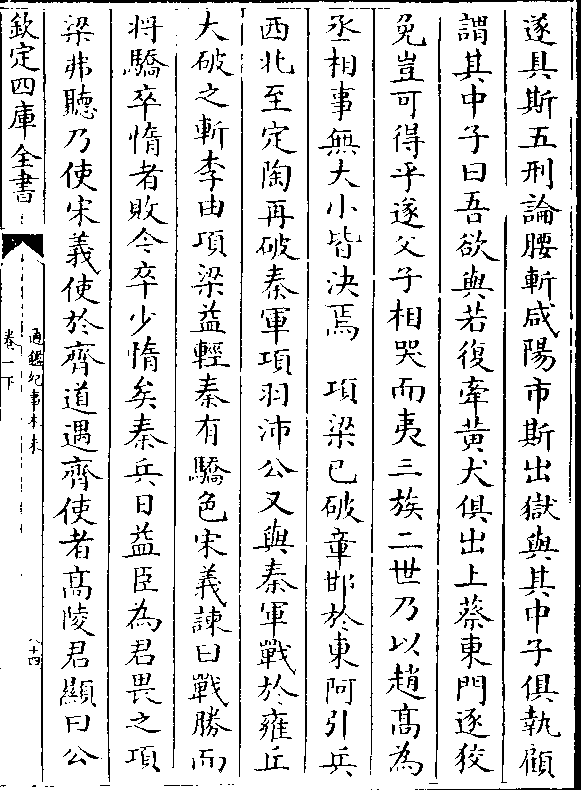 遂具斯五刑論腰斬咸陽市斯出獄與其中子俱執顧
謂其中子曰吾欲與若復牽黃犬俱出上蔡東門逐狡
免豈可得乎遂父子相哭而夷三族二世乃以趙髙為
丞相事無大小皆決焉　項梁已破章邯於東阿引兵
西北至定陶再破秦軍項羽沛公又與秦軍戰於雍丘
大破之斬李由項梁益輕秦有驕色宋義諫曰戰勝而
将驕卒惰者敗今卒少惰矣秦兵日益臣為君畏之項
梁弗聽乃使宋義使於齊道遇齊使者髙陵君顯曰公
欽定四庫全書
通鑑紀事本末
卷一下
八十四